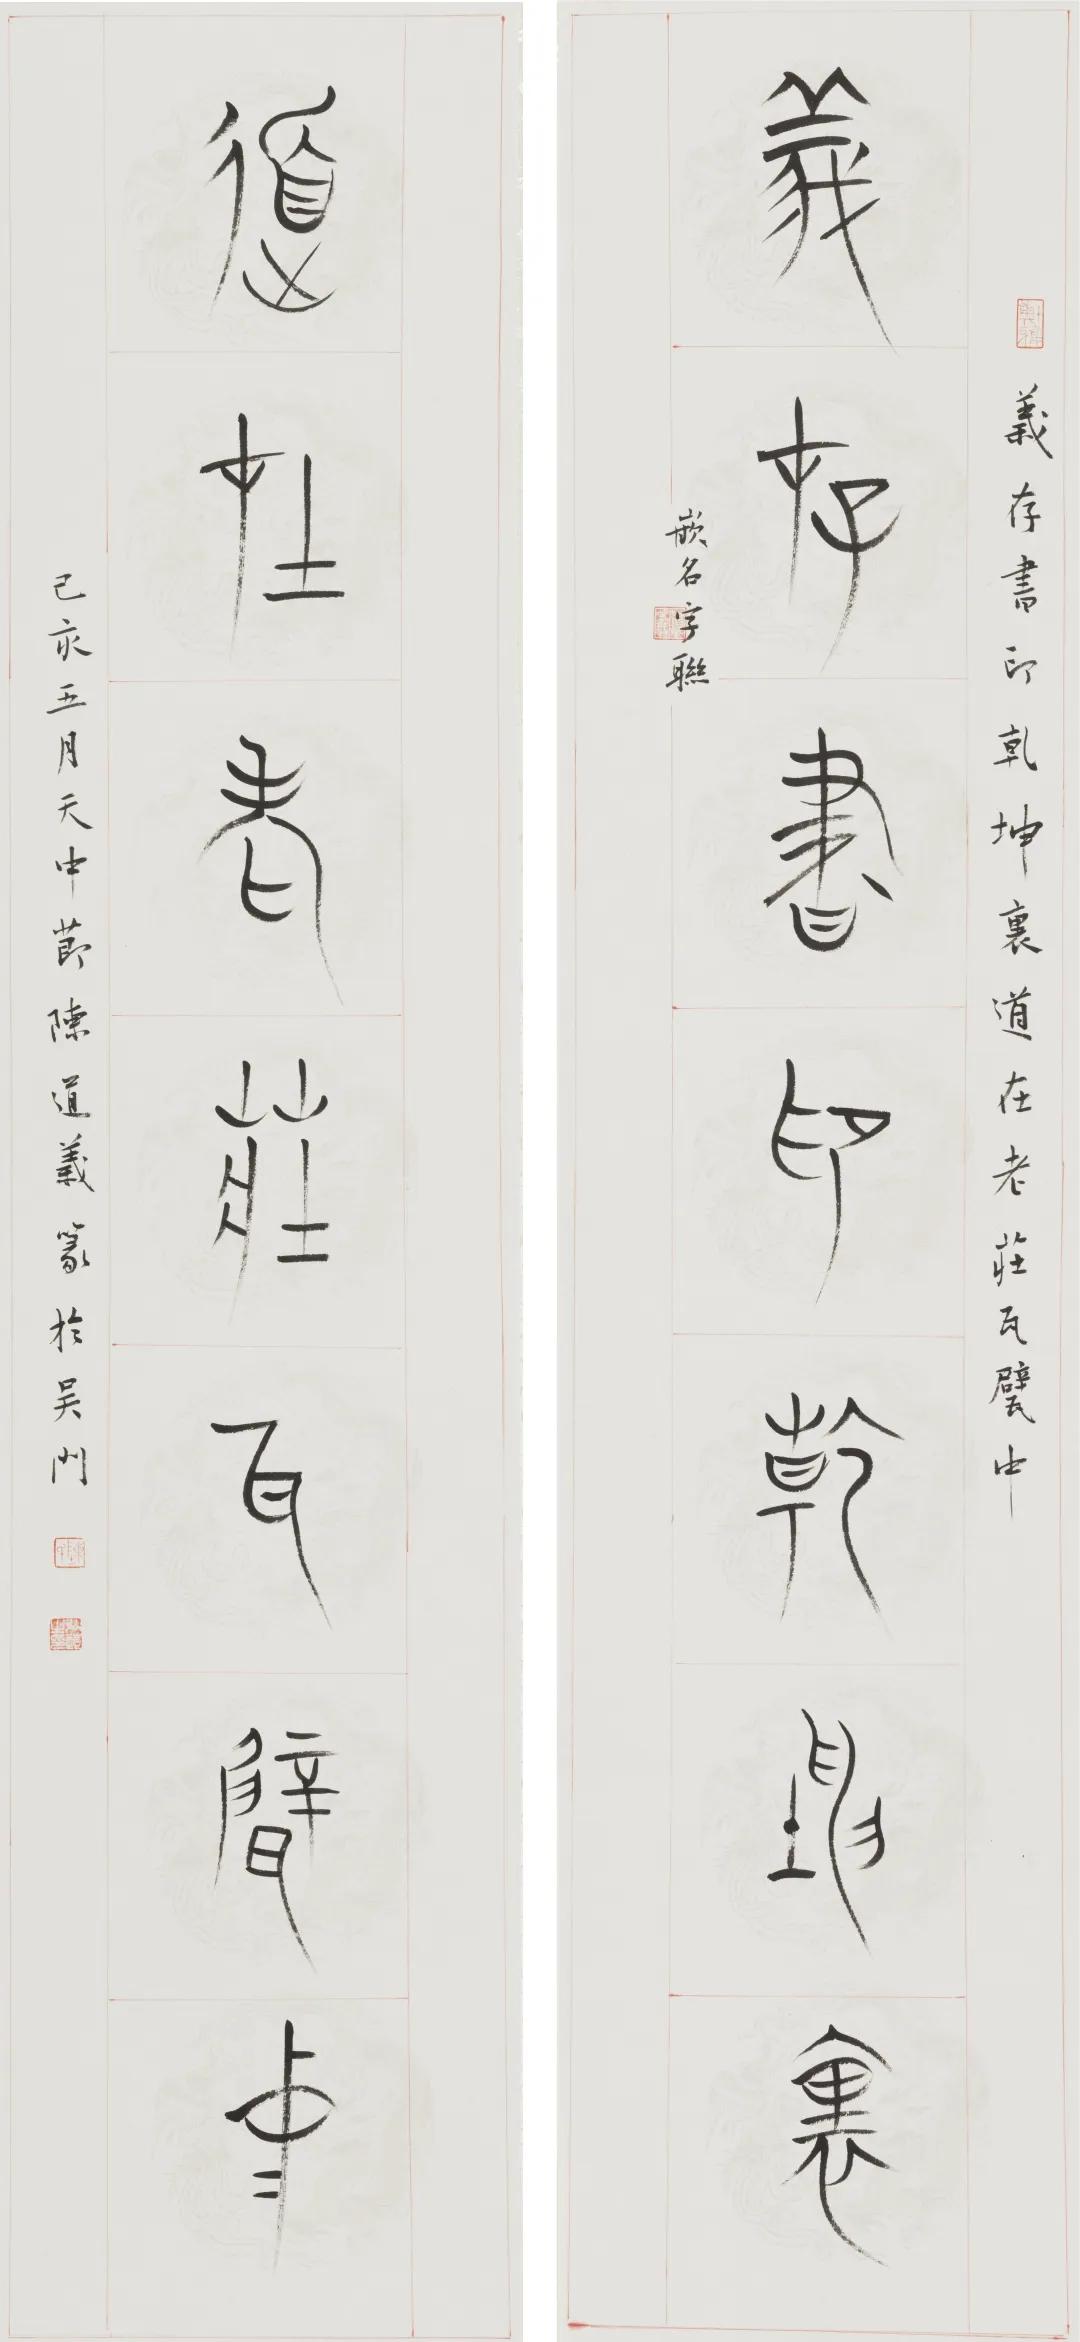 義存書印乾坤裏
義存書印乾坤裏道在老莊瓦甓中
嵌名字聯
道在老莊瓦甓中
己亥五月天中節陳道義篆於吴門